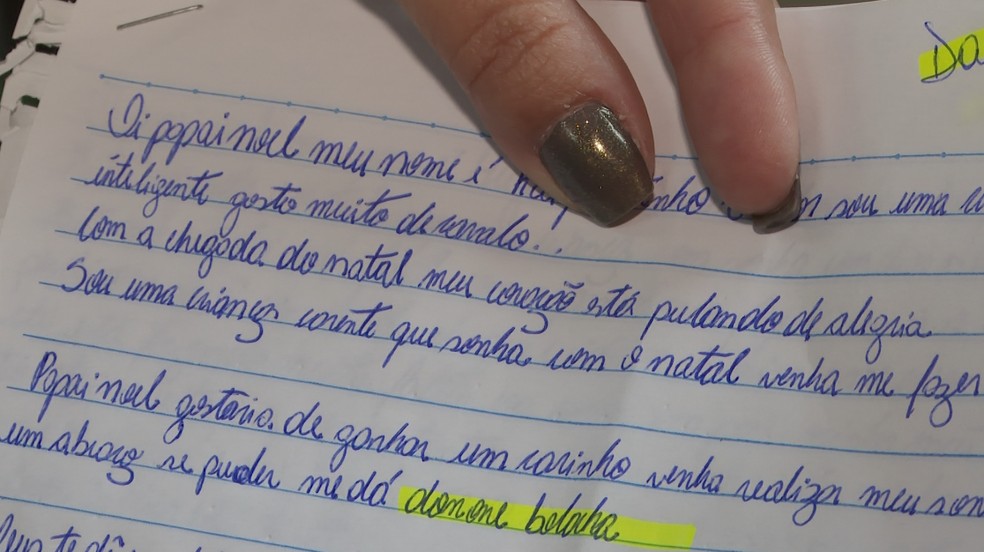 Da
Oi papai noel meu nome é sou uma
inteligente gosto muito de cavalo..
com a chegada do natal meu coração está pulando de alegria
Sou uma criança carente que sonha com o natal venha me fazer
Papai noel gostaria de ganhar um carinho venha realiza meu son
um abraço se puder me dá danone bolacha